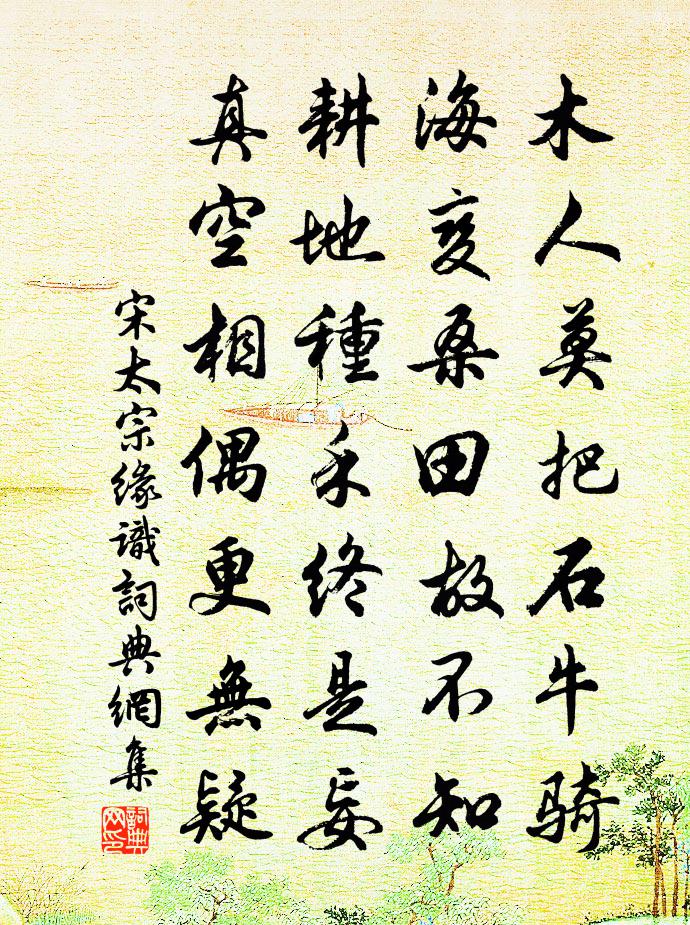 木人莫把石牛騎
海變桑田故不知
耕地種禾終是妄
真空相偶更無疑
宋太宗緣識詞典網集
詞典网印